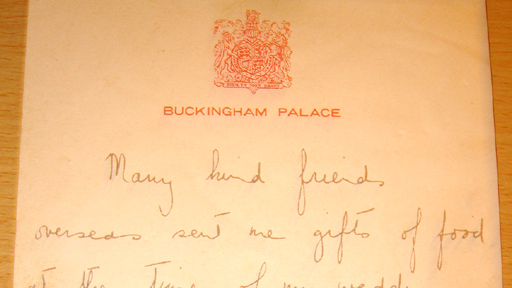 BUCKINGHAM PALACE
Many kind friends
overseas sent me gifts of food
at the time of my